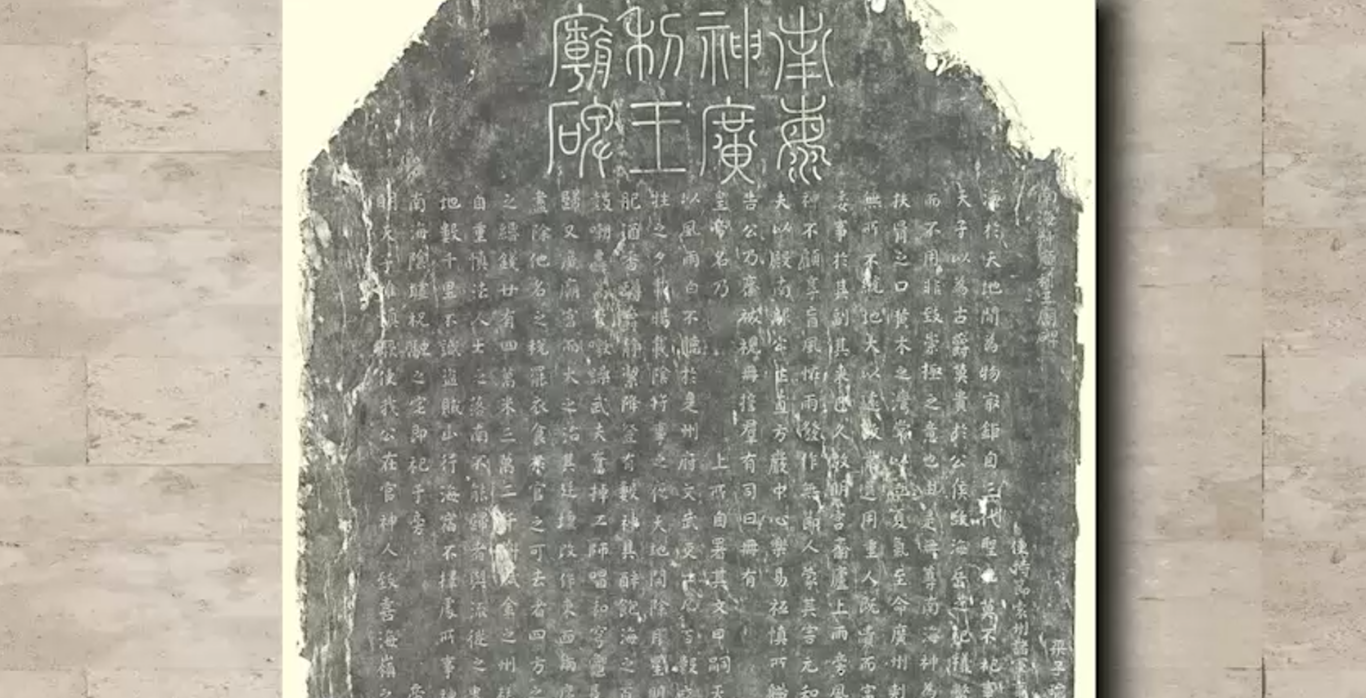 南海神廣利王廟碑
南海神廣利王廟碑
使持節袁州諸軍
海於天地間為物最鉅自三代聖王莫不祀事
天子以為古爵莫貴於公侯故海岳之祀犧幣
而不用非致崇極之意也由是冊尊南海神為
扶胥之口黃木之灣常以立夏氣至命廣州刺
無所不統地大以遠故常選用重人既貴而富
委事於其副其來已久故明宮齋廬上雨旁風
神不顧享盲風怪雨發作無節人蒙其害元和
夫以殿南服公正直方嚴中心樂易祗慎所職
告公乃齋祓視冊誓羣有司曰冊有
皇帝名乃 上所自署其文曰嗣天
以風雨白不聽於是州府文武吏士凡百數
牲之夕載暘載陰將事之夜天地開除月星明
肥酒香罇爵靜潔降登有數神具醉飽海之百
鼓嘲轟高管噭譟武夫奮棹工師唱和穹龜長
歲又廣廟宮而大之治其庭壇改作東西兩序
盡除他名之稅罷衣食於官之可去者四方之
之緡錢廿有四萬米三萬二千斛賦金之州耗
自重慎法人士之落南不能歸者與流徙之冑
地數千里不識盜賊山行海宿不擇處所事神
南海陰墟祝融之宅即祀于旁
明天子惟慎厥使我公在官神人致喜海嶺之